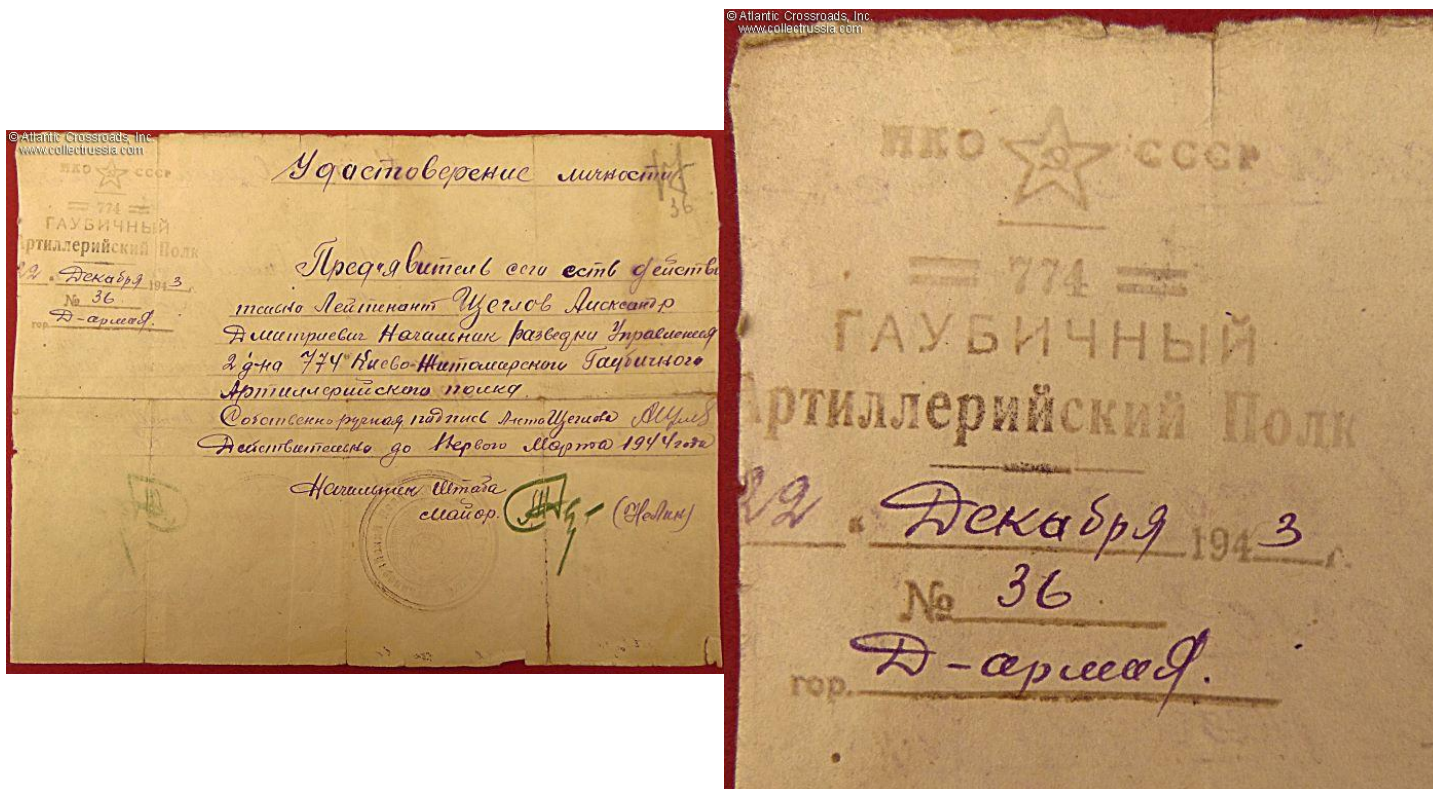 © Atlantic Crossroads, Inc.
www.collectrussia.com
НКО СССР
774
ГАУБИЧНЫЙ
Артиллерийский Полк
22 " Декабря 1943 г.
№ 36
гор. Д-армая.
Удостоверение личности
36
Пред'явитель сего есть действи
тельно Лейтенант Щеглов Александр
Дмитриевич Начальник разведки Управления
2 д-на 774 Киево-Житомирского Гаубичного
Артиллерийского полка.
Собственно ручная подпись Щеглова
Действительно до Первого Марта 1944 года
Начальник Штаба
майор.
© Atlantic Crossroads, Inc.
www.collectrussia.com
НКО СССР
774
ГАУБИЧНЫЙ
Артиллерийский Полк
22 " Декабря 1943 г.
№ 36
гор. Д-армая.